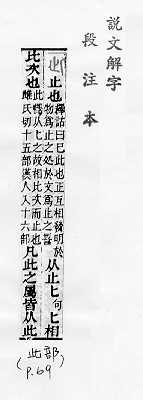 説文解字
段注本
止也釋詁曰已此也正互相發明於物爲止之處於文爲止之䛐从止匕句匕相
比次也此釋从匕之故相比次而止也雌氏切十五部漢人入十六部凡此之屬皆从此
(此部)
P.69